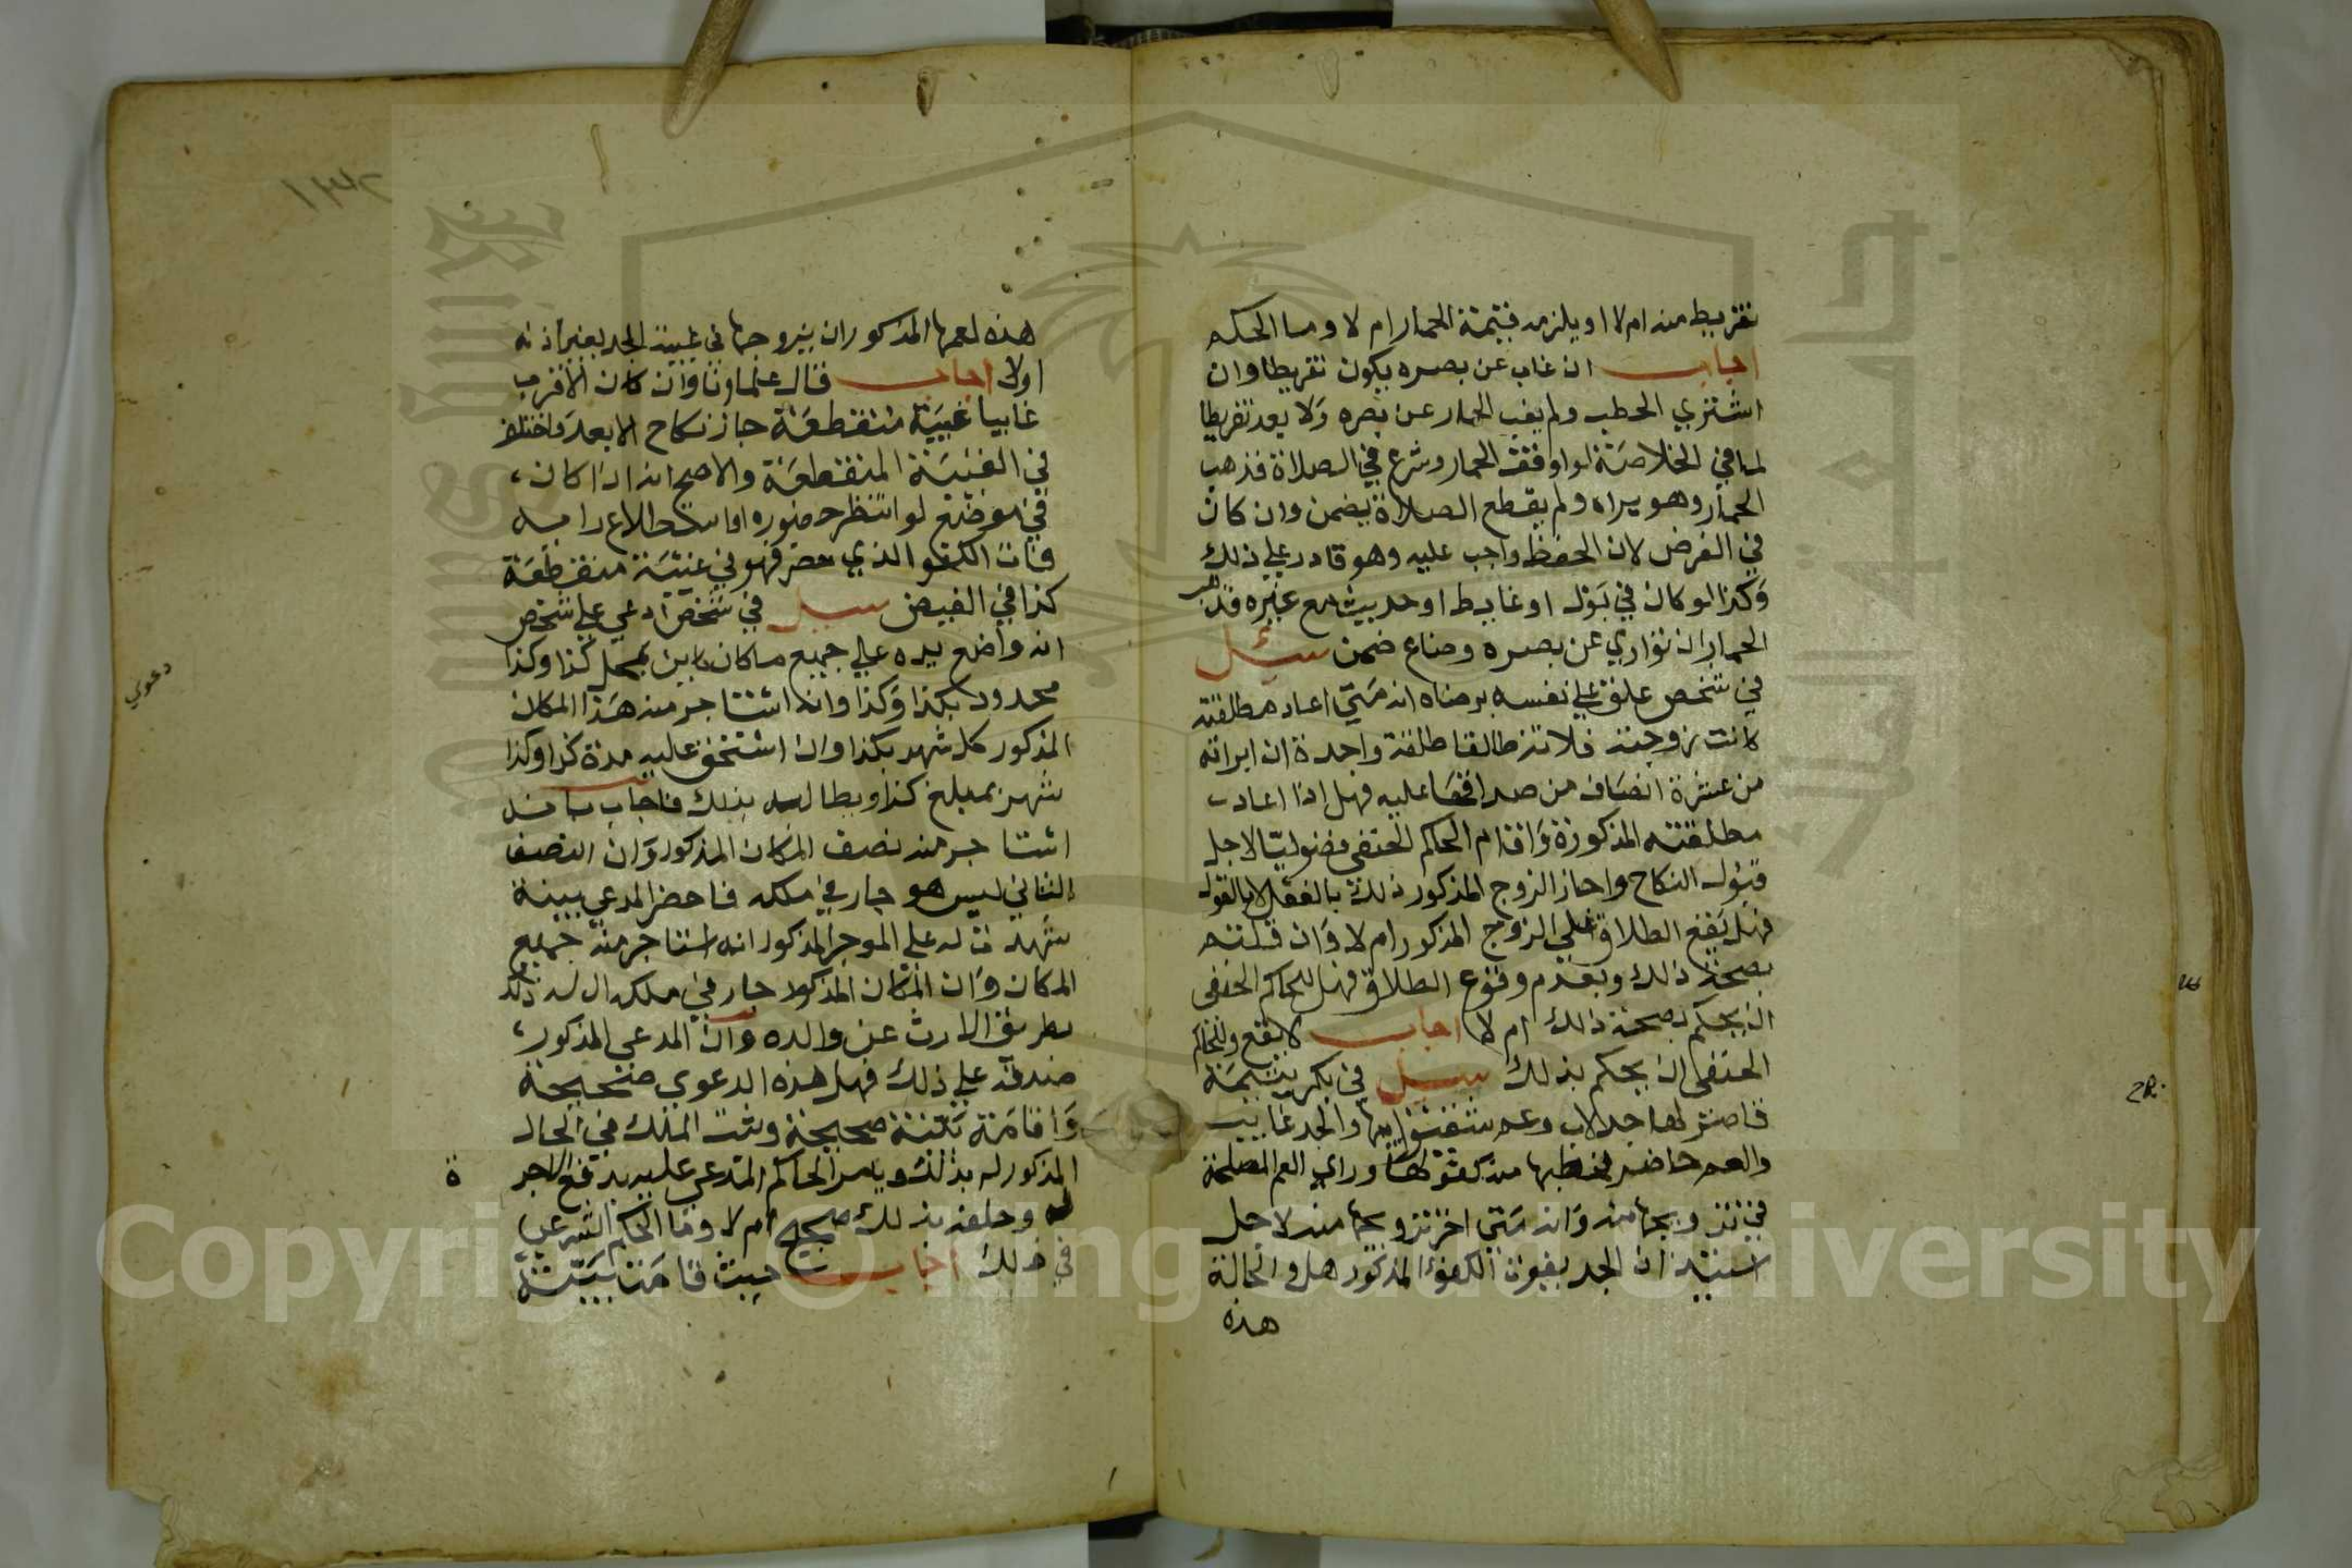 تفريط منه ام لا او يلزمه قيمة الحمار ام لا وما الحكم
اجاب ان غاب عن بصره يكون تفريطا وان
اشتري الحطب ولم يغب الحمار عن بصره ولا يعد تفريطا
لما في الخلاصة لو اوقف الحمار وشرع في الصلاة فذهب
الحمار وهو يراه ولم يقطع الصلاة يضمن وان كان
في الفرض لان الحفظ واجب عليه وهو قادر علي ذلك
وكذا لو كان في بول او غايط او حديث مع غيره فذهب
الحمار ان تواري عن بصره وضاع ضمن سيل
في شخص علق علي نفسه برضاه انه متي اعاد مطلقته
كانت زوجته فلانة طالقا طلقة واحدة ان ابراته
من عشرة انصاف من صداقها عليه فهل اذا اعاد
مطلقته المذكورة واقام الحاكم الحنفي فضوليا لاجل
قبول النكاح واجاز الزوج المذكور ذلك بالفعل لا بالقول
فهل يقع الطلاق علي الزوج المذكور ام لا وان قلتم
بصحة ذلك وبعدم وقوع الطلاق فهل للحاكم الحنفي
ان يحكم بصحة ذلك ام لا اجاب لا يقع وللحاكم
الحنفي ان يحكم بذلك سيل في بكر يتيمة
قاصر لها جد لاب وعم شقيق ابيها والجد غايب
والعم حاضر فخطبها منه كفؤ لها وراي العم المصلحة
في تزويجها منه وانه متي اخر تزويجها منه لاجل
ان الجد يفوت الكفؤ المذكور هل والحالة
هذه
هذه لعمها المذكور ان يزوجها في غيبة الجد بغير اذنه
اولا اجاب قال علماونا وان كان الاقرب
غايبا غيبة منقطعة جاز نكاح الابعد واختلف
في الغيبة المنقطعة والاصح انه اذا كان
في موضع لو انتظر حضوره او استطلاع رايه
فات الكفو الذي حضر فهو في غيبة منقطعة
كذا في الفيض سيل في شخص ادعي علي شخص
انه واضع يده علي جميع مكان كاين بمحل كذا وكذا
محدود بكذا وكذا وانه استاجر منه هذا المكان
المذكور كل شهر بكذا وانه استحق عليه مدة كذا وكذا
شهر بمبلغ كذا ويطالبه بذلك فاجاب بانه
استاجر منه نصف المكان المذكور وان النصف
الثاني ليس هو جار في ملكه فاحضر المدعي بينة
شهدت له علي الموجر المذكور انه استاجر منه جميع
المكان وان المكان المذكور جار في ملكه ال له ذلك
بطريق الارث عن والده وان المدعي المذكور
صدقه علي ذلك فهل هذه الدعوي صحيحة
واقامة بينة صحيحة ويثبت الملك في الحال
المذكور له بذلك ويامر الحاكم المدعي عليه بدفع الاجر
ة
له وحلفه بذلك صحيح ام لا وما الحكم الشرعي
في ذلك اجاب حيث قامت بينة
دعوي